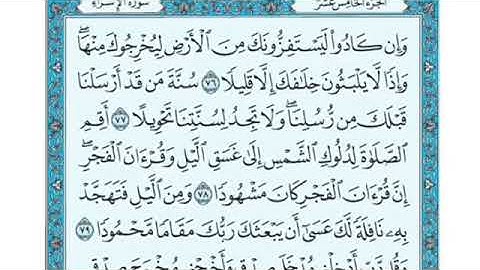 الجزء الخامس عشر
سورة الإسراء
وَإِن كَادُوا۟ لَيَسْتَفِزُّونَكَ مِنَ ٱلْأَرْضِ لِيُخْرِجُوكَ مِنْهَا ۖ
وَإِذًا لَّا يَلْبَثُونَ خِلَـٰفَكَ إِلَّا قَلِيلًا ٧٦ سُنَّةَ مَن قَدْ أَرْسَلْنَا
قَبْلَكَ مِن رُّسُلِنَا ۖ وَلَا تَجِدُ لِسُنَّتِنَا تَحْوِيلًا ٧٧ أَقِمِ
ٱلصَّلَوٰةَ لِدُلُوكِ ٱلشَّمْسِ إِلَىٰ غَسَقِ ٱلَّيْلِ وَقُرْءَانَ ٱلْفَجْرِ ۖ
إِنَّ قُرْءَانَ ٱلْفَجْرِ كَانَ مَشْهُودًا ٧٨ وَمِنَ ٱلَّيْلِ فَتَهَجَّدْ
بِهِۦ نَافِلَةً لَّكَ عَسَىٰٓ أَن يَبْعَثَكَ رَبُّكَ مَقَامًا مَّحْمُودًا ٧٩
وَقُل رَّبِّ أَدْخِلْنِى مُدْخَلَ صِدْقٍ وَأَخْرِجْنِى مُخْرَجَ صِدْقٍ